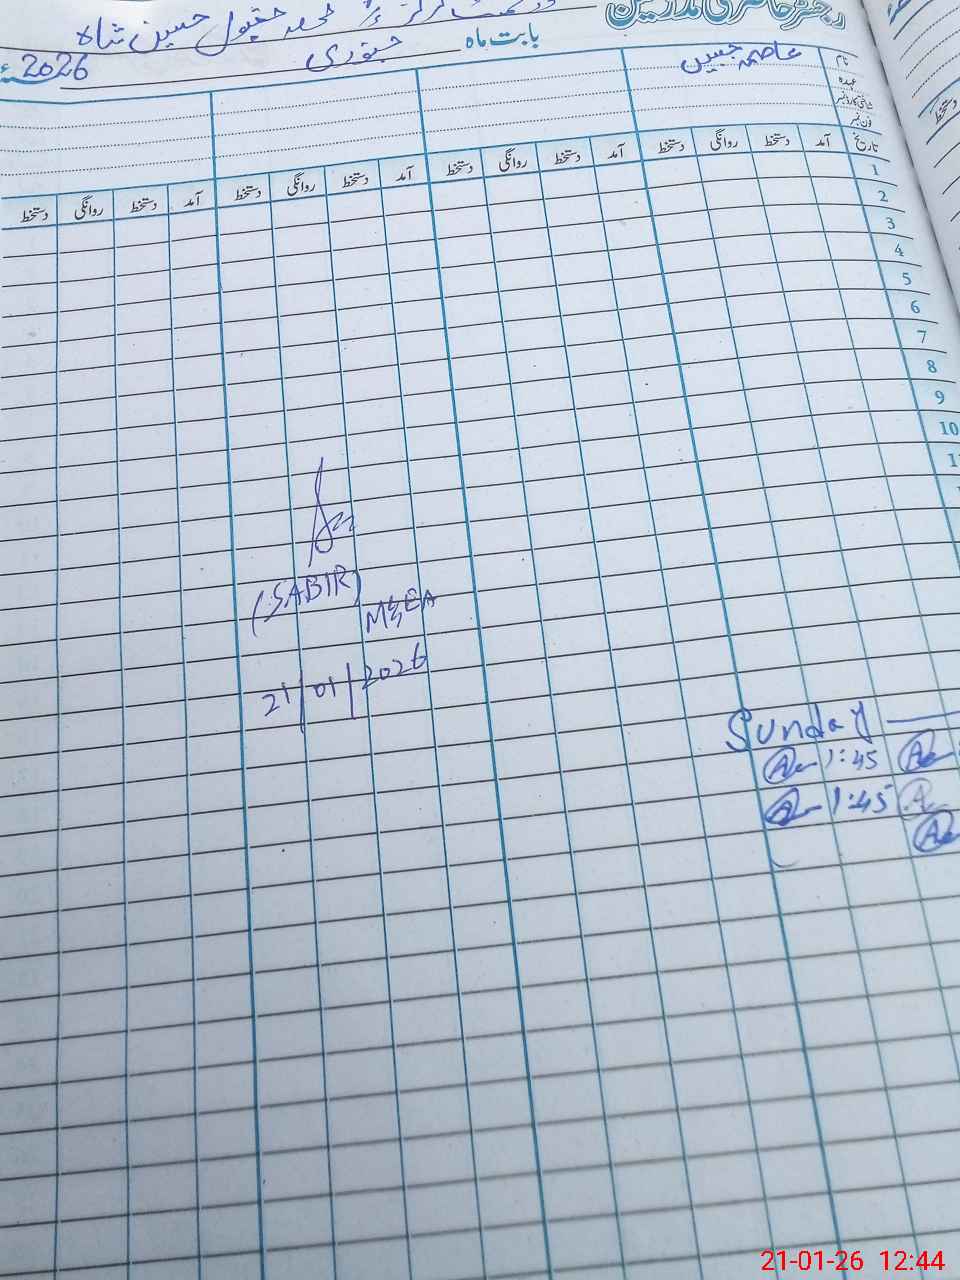 رجسٹر حاضری مدرسین
گورنمنٹ گرلز محمد مقبول حسین شاہ
بابت ماہ جنوری 2026ء
نام عاصمہ جبین
عہدہ
شناختی کارڈ نمبر
فون نمبر
تاریخ آمد دستخط روانگی دستخط آمد دستخط روانگی دستخط آمد دستخط روانگی دستخط آمد دستخط روانگی دستخط
1
2
3
4
5
6
7
8
9
10
(SABIR)
MEA
21/01/2026
Sunday
1:45
1:45
دستخط
21-01-26 12:44